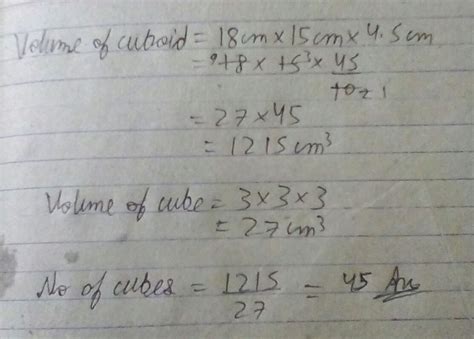 Volume of cuboid = 18cm × 15cm × 4.5cm
= 9 18 × 15 3 × 45/10 2 1
= 27 × 45
= 1215cm³
Volume of cube = 3×3×3
= 27cm³
No of cubes = 1215/27 = 45 Ans